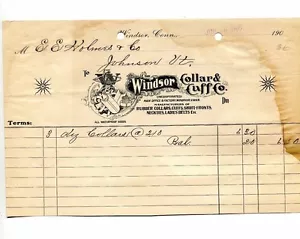 Windsor, Conn. 190
M E E Holmes & Co
Johnson Vt.
Windsor Collar & Cuff Co.
INCORPORATED
MAIN OFFICE & FACTORY WINDSOR CONN.
MANUFACTURERS OF
RUBBER COLLARS, CUFFS, SHIRT FRONTS,
NECKTIES, LADIES BELTS Etc.
Dr
Terms:
2 dz Collars @ 210 4 20
Bal. 4 20